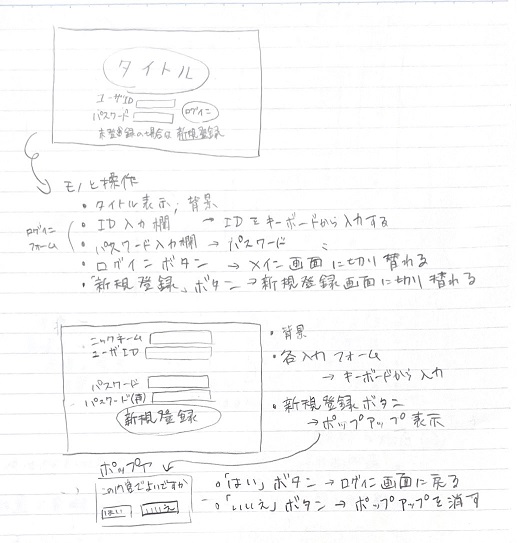 タイトル
ユーザID
パスワード
ログイン
未登録の場合は 新規登録
モノと操作
・タイトル表示, 背景
ログインフォーム
・ID入力欄 → IDをキーボードから入力する
・パスワード入力欄 → パスワード 〃
・ログインボタン → メイン画面に切り替わる
・「新規登録」ボタン → 新規登録画面に切り替わる
ニックネーム
ユーザID
パスワード
パスワード(再)
新規登録
・背景
・各入力フォーム
→ キーボードから入力
・新規登録ボタン
→ ポップアップ表示
ポップア
この内容でよいですか
はい いいえ
○「はい」ボタン → ログイン画面に戻る
○「いいえ」ボタン → ポップアップを消す